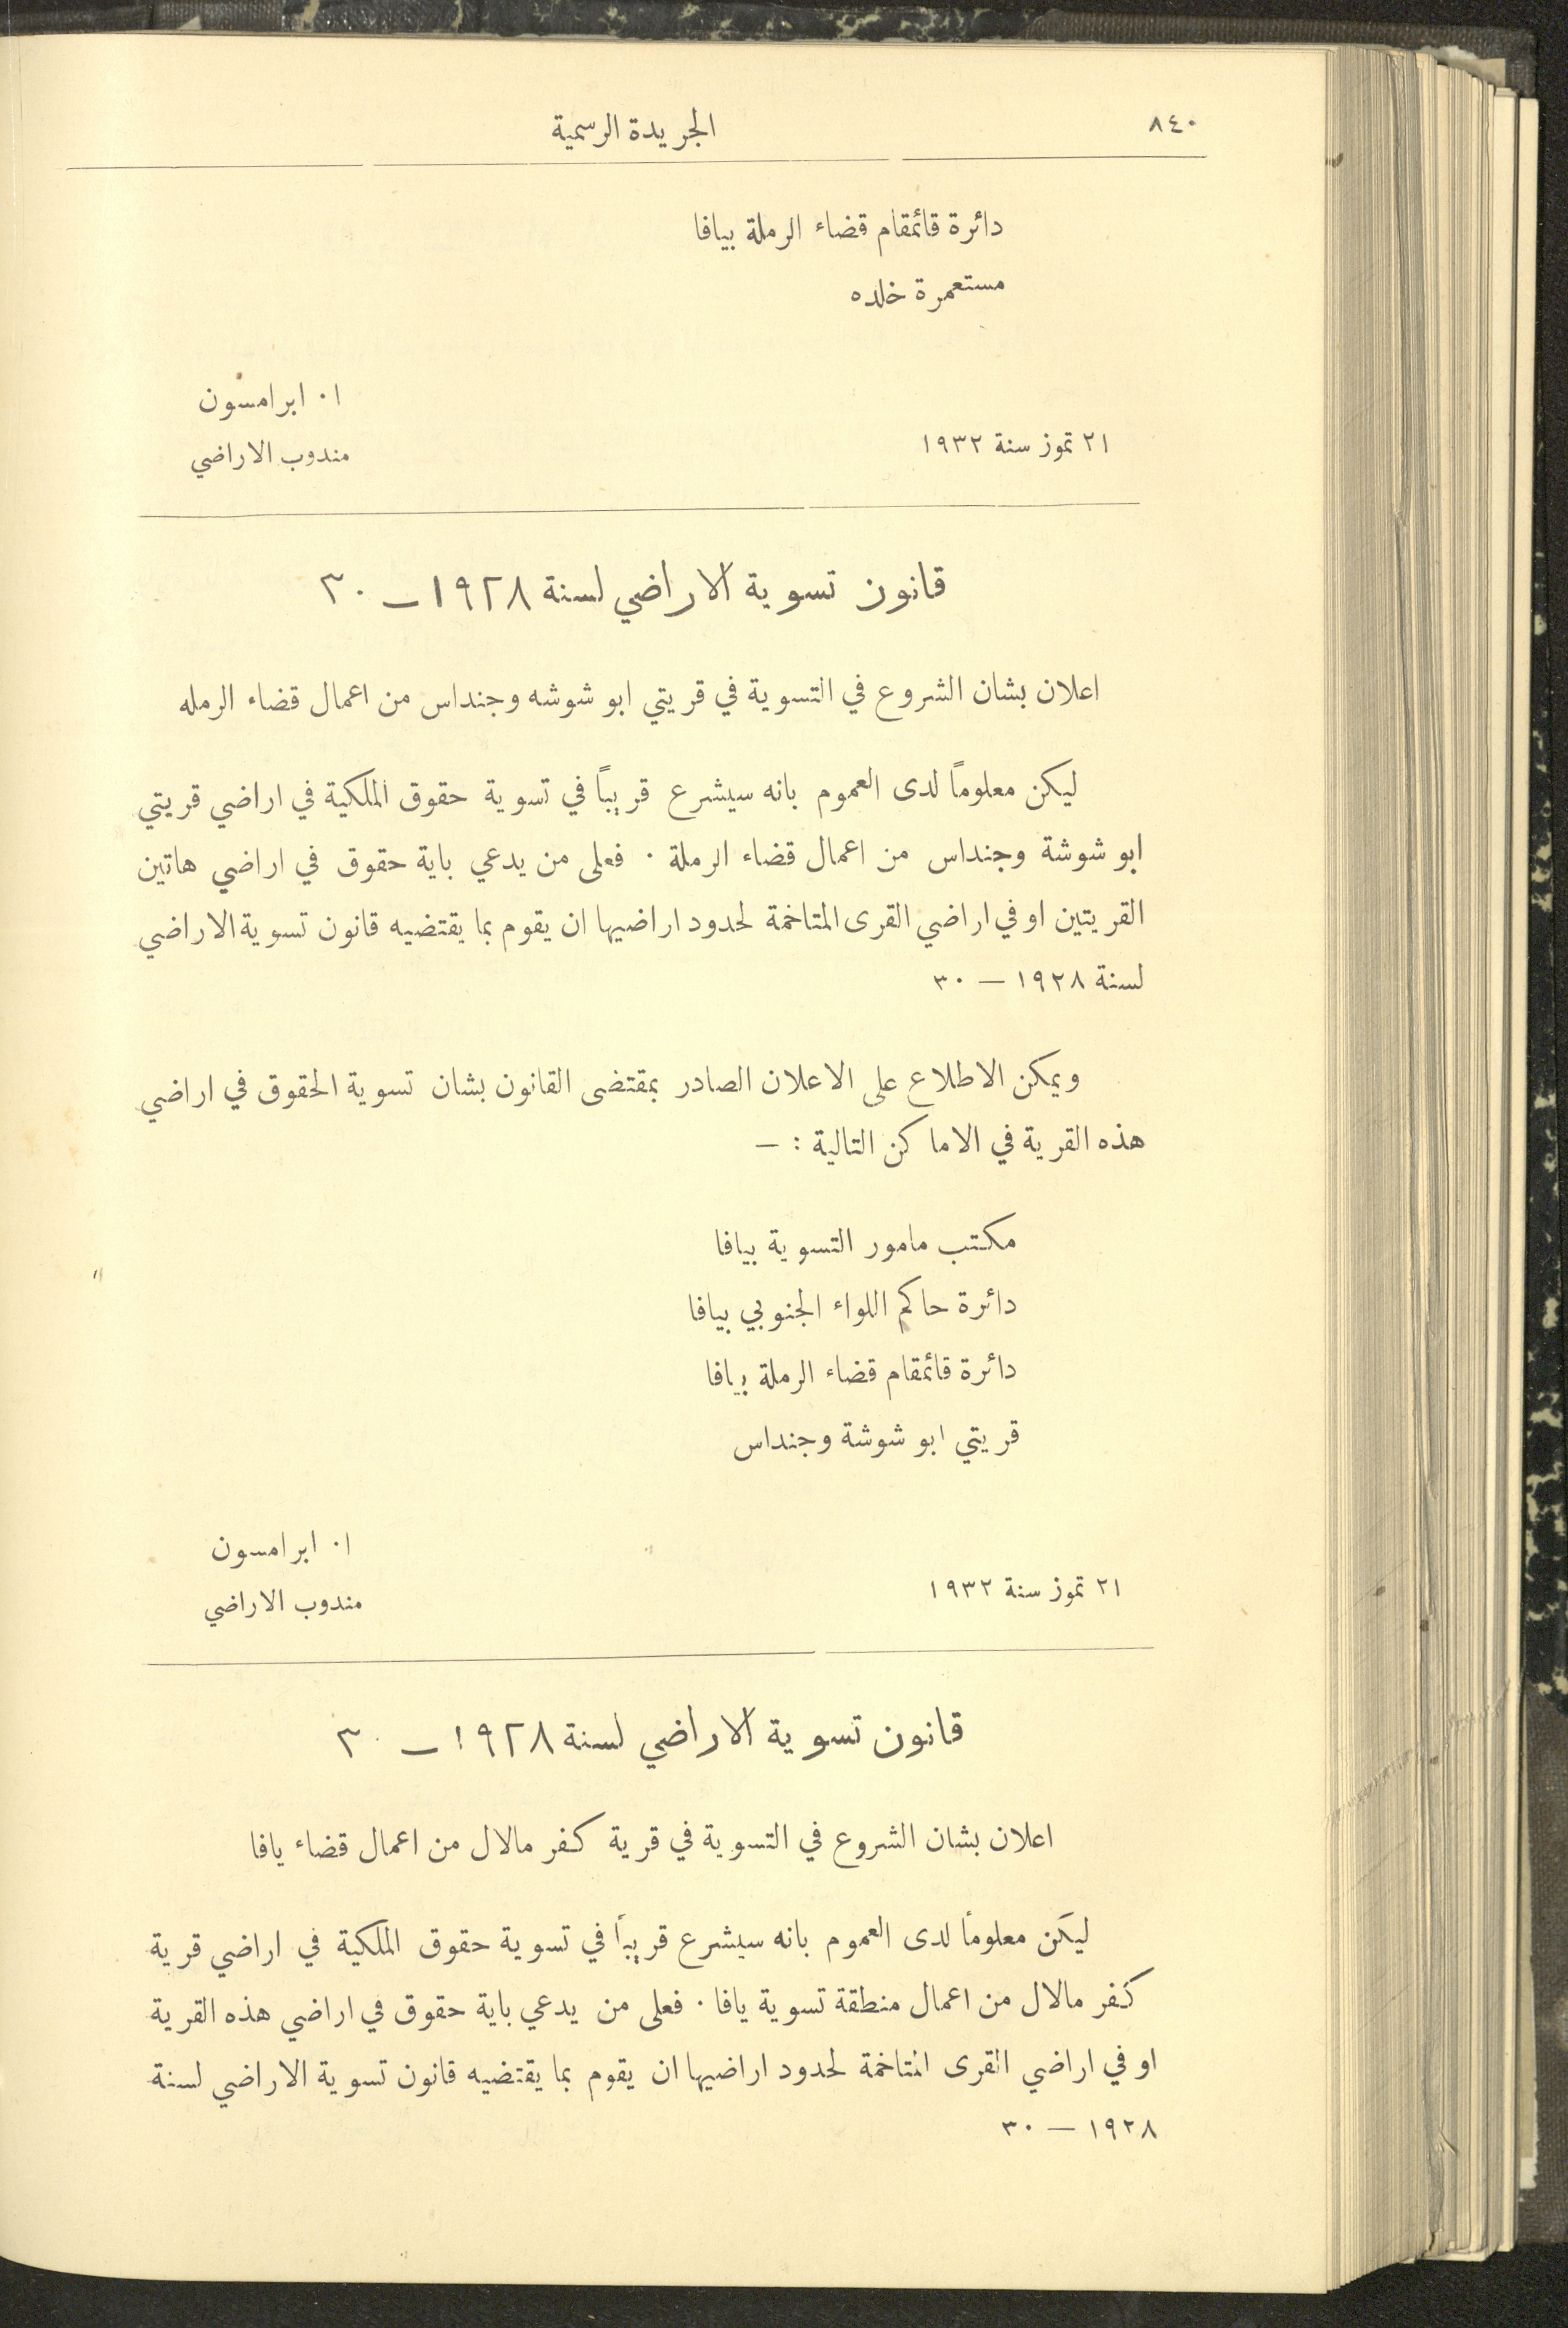 ٨٤٠
الجريدة الرسمية
دائرة قائمقام قضاء الرملة بيافا
مستعمرة خلده
ا٠ ابرامسون
٢١ تموز سنة ١٩٣٢
مندوب الاراضي
قانون تسوية الاراضي لسنة ١٩٢٨ – ٣٠
اعلان بشان الشروع في التسوية في قريتي ابو شوشه وجنداس من اعمال قضاء الرمله
ليكن معلوماً لدى العموم بانه سيشرع قريباً في تسوية حقوق الملكية في اراضي قريتي
ابو شوشة وجنداس من اعمال قضاء الرملة ٠ فعلى من يدعي باية حقوق في اراضي هاتين
القريتين او في اراضي القرى المتاخمة لحدود اراضيها ان يقوم بما يقتضيه قانون تسوية الاراضي
لسنة ١٩٢٨ – ٣٠
ويمكن الاطلاع على الاعلان الصادر بمقتضى القانون بشان تسوية الحقوق في اراضي
هذه القرية في الاماكن التالية : –
مكتب مامور التسوية بيافا
دائرة حاكم اللواء الجنوبي بيافا
دائرة قائمقام قضاء الرملة بيافا
قريتي ابو شوشة وجنداس
ا٠ ابرامسون
٢١ تموز سنة ١٩٣٢
مندوب الاراضي
قانون تسوية الاراضي لسنة ١٩٢٨ – ٣٠
اعلان بشان الشروع في التسوية في قرية كفر مالال من اعمال قضاء يافا
ليكن معلوماً لدى العموم بانه سيشرع قريباً في تسوية حقوق الملكية في اراضي قرية
كفر مالال من اعمال منطقة تسوية يافا ٠ فعلى من يدعي باية حقوق في اراضي هذه القرية
او في اراضي القرى المتاخمة لحدود اراضيها ان يقوم بما يقتضيه قانون تسوية الاراضي لسنة
١٩٢٨ – ٣٠